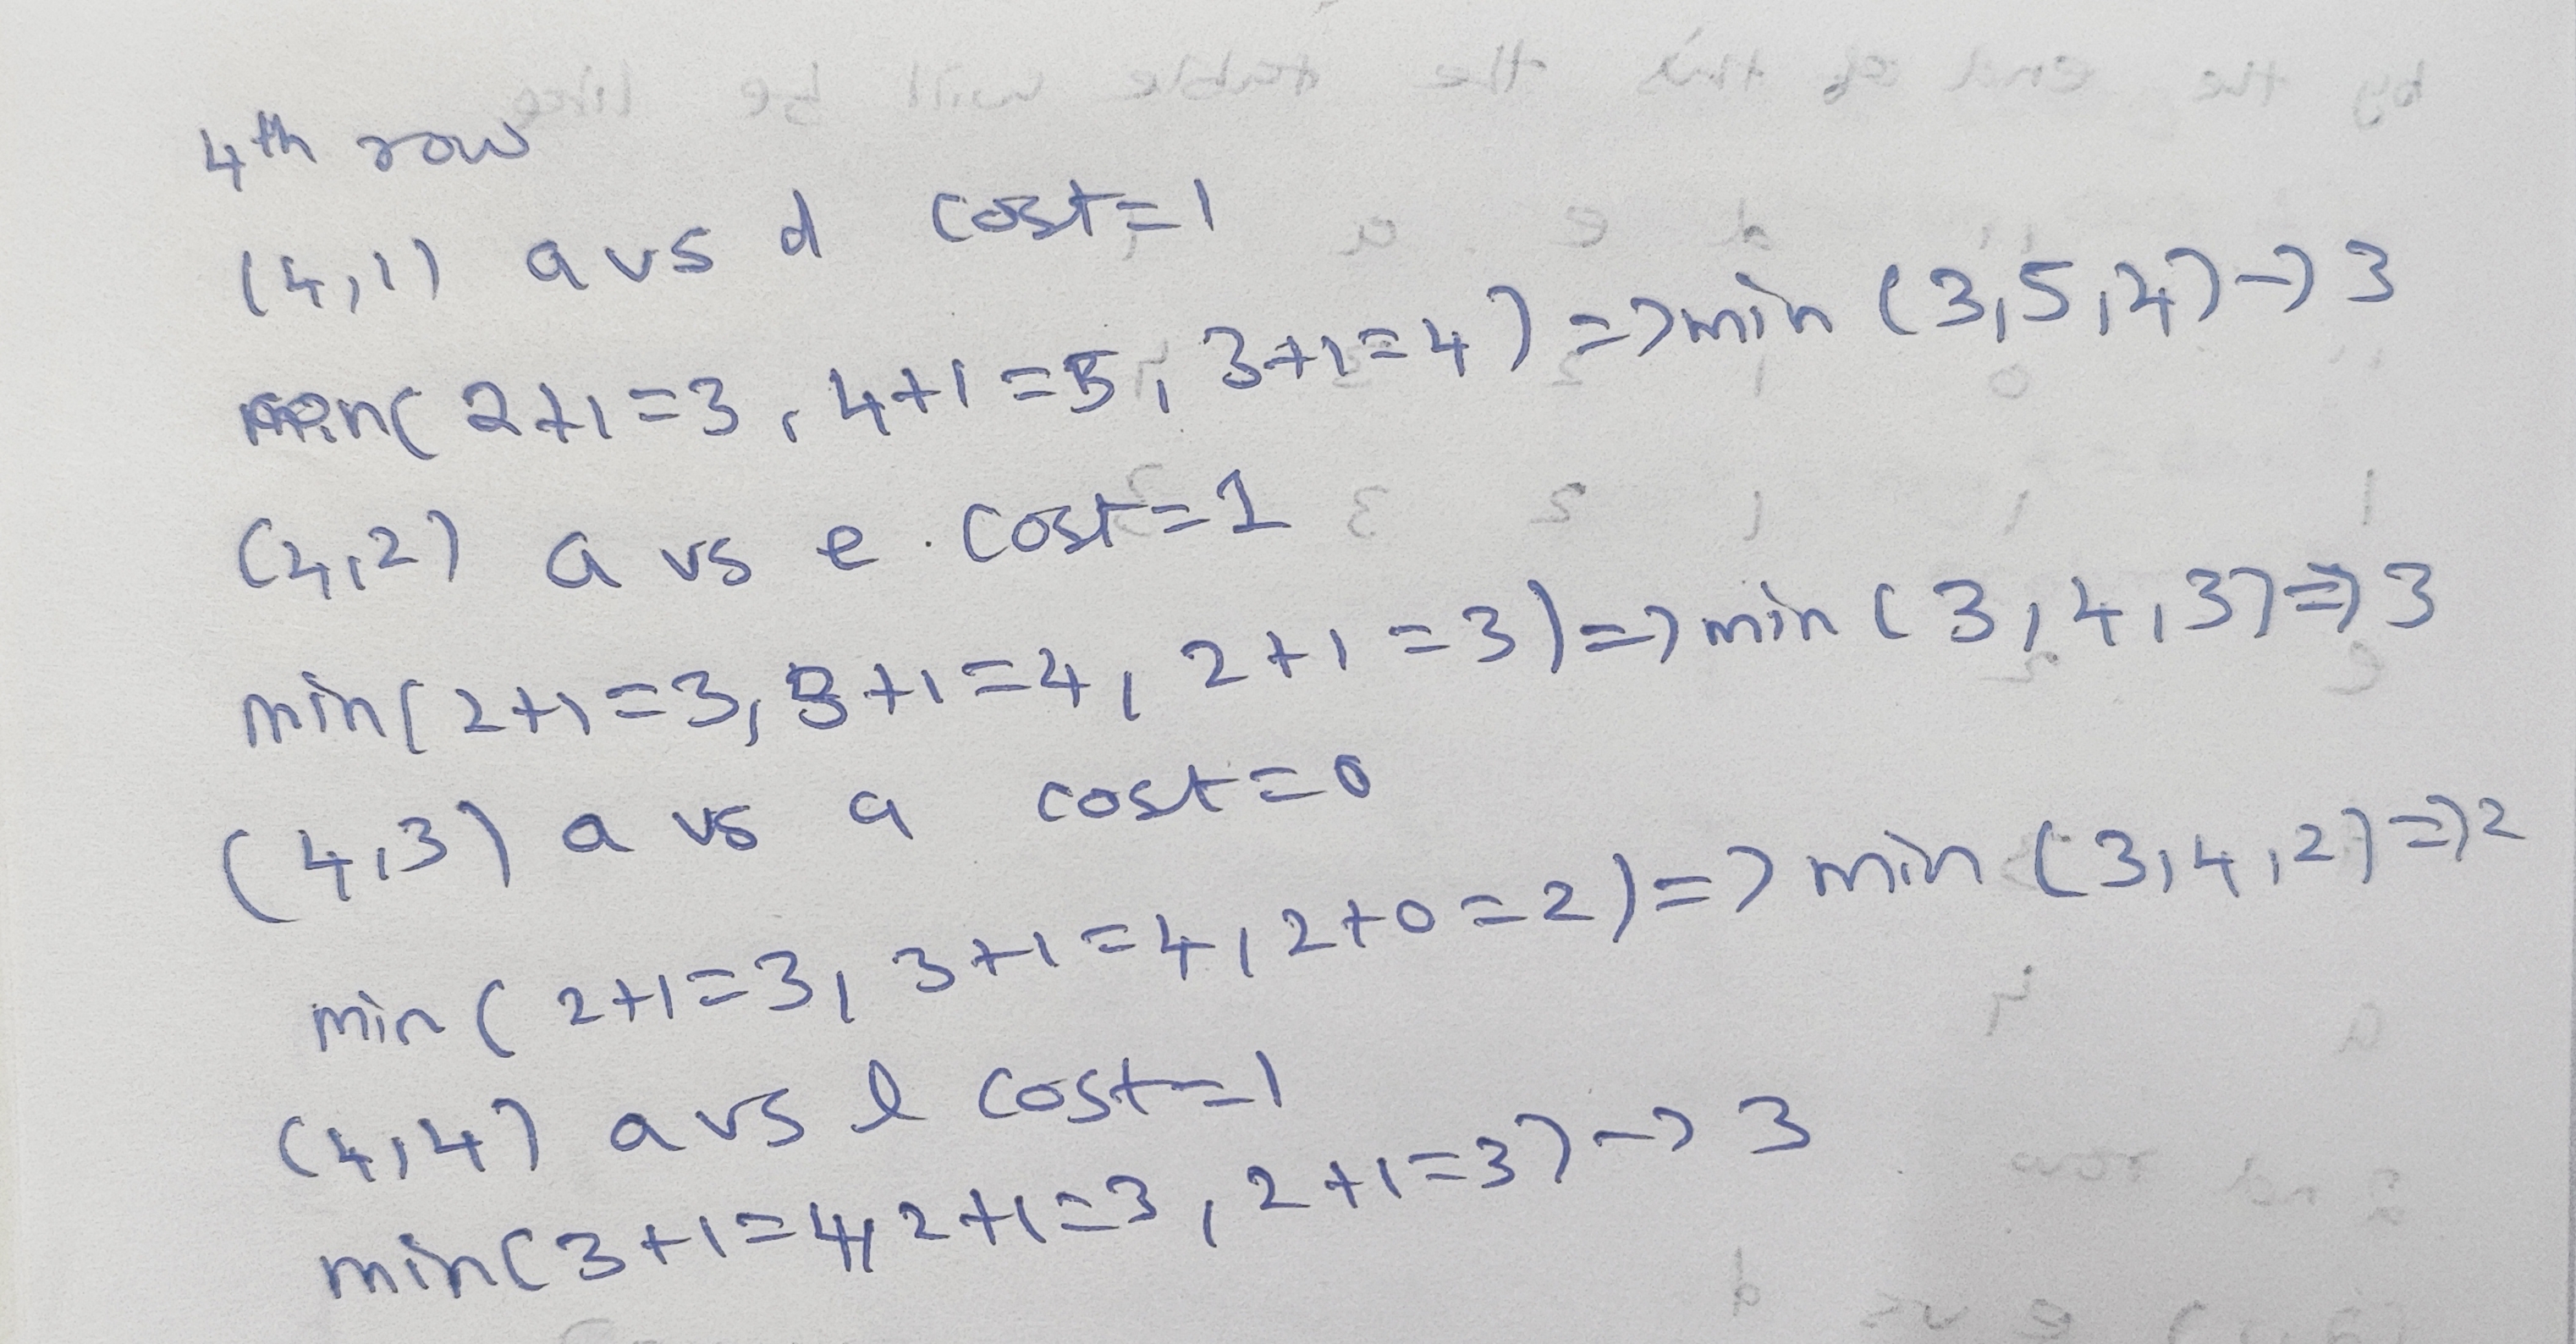 4th row
(4,1) a vs d cost=1
min( 2+1=3, 4+1=5, 3+1=4) => min (3,5,4) -> 3
(4,2) a vs e. cost=1
min(2+1=3, 3+1=4, 2+1=3) => min (3,4,3) => 3
(4,3) a vs a cost=0
min (2+1=3, 3+1=4, 2+0=2) => min (3,4,2) => 2
(4,4) a vs l cost=1
min(3+1=4, 2+1=3, 2+1=3) -> 3